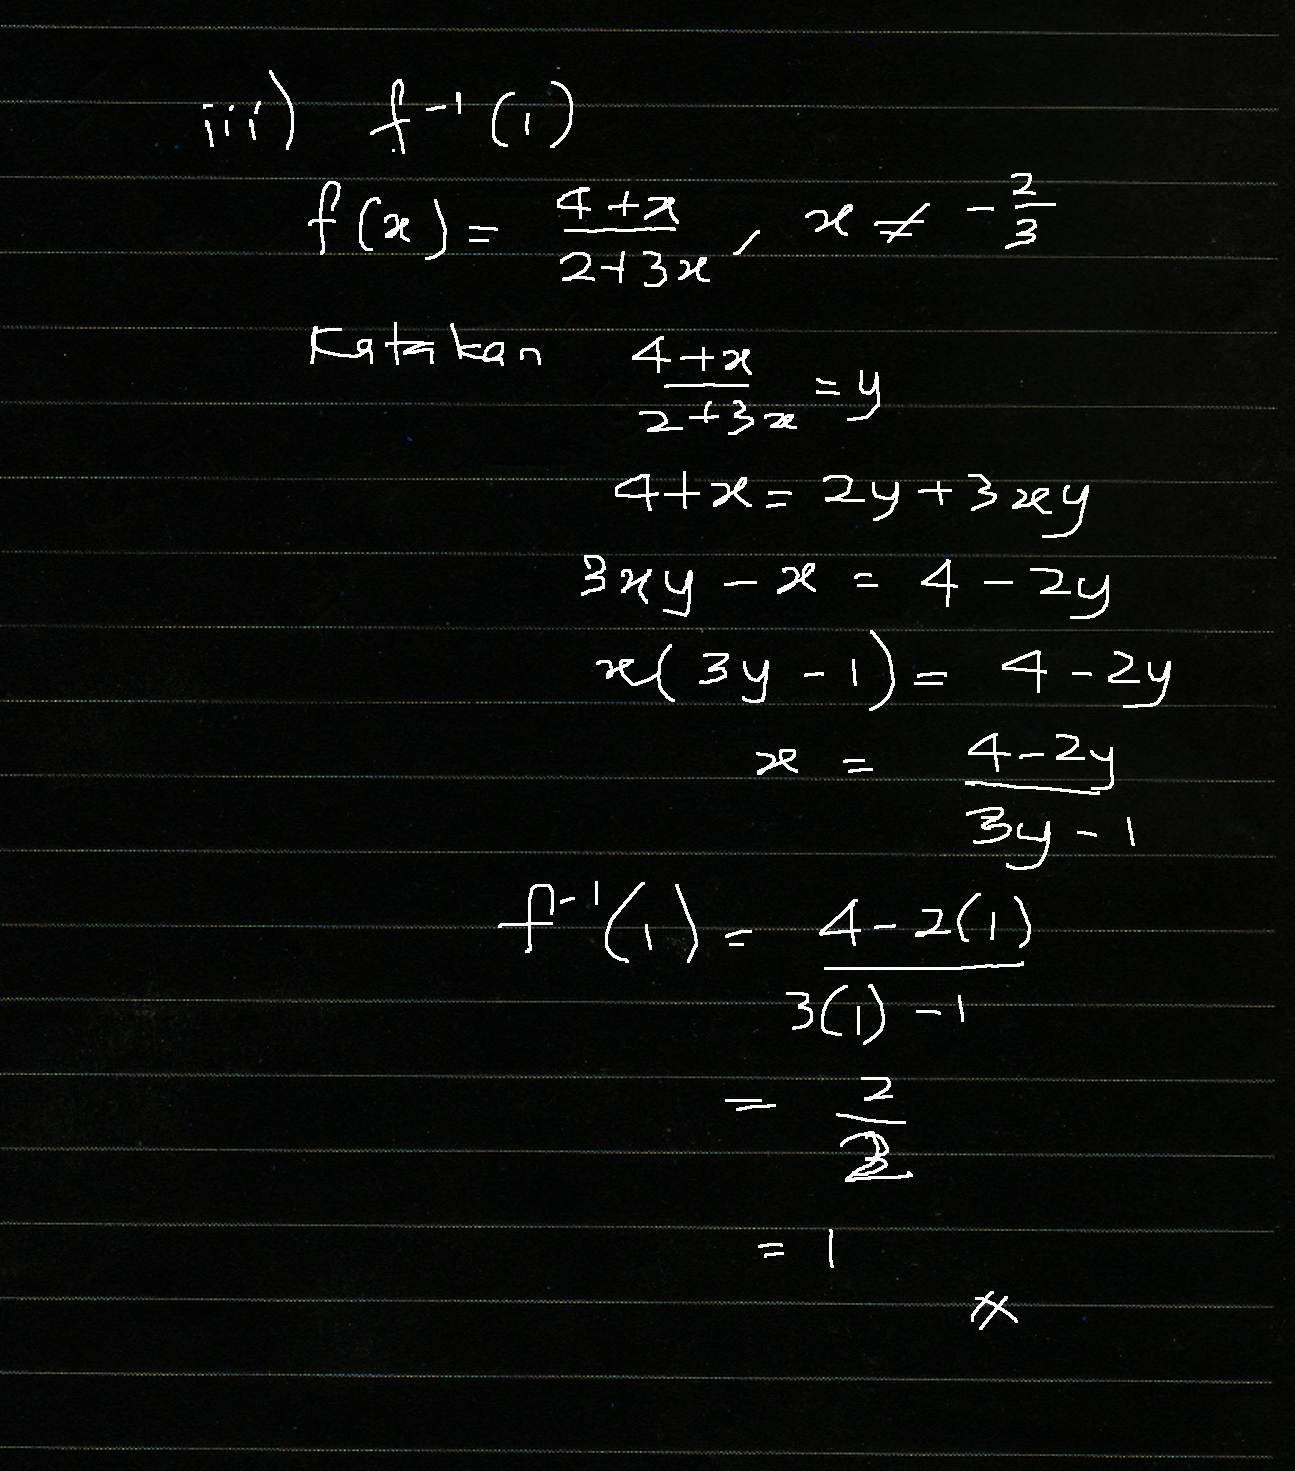 iii) f⁻¹(1)
f(x) = (4+x)/(2+3x), x ≠ -2/3
Katakan (4+x)/(2+3x) = y
4+x = 2y+3xy
3xy - x = 4 - 2y
x(3y - 1) = 4 - 2y
x = (4-2y)/(3y-1)
f⁻¹(1) = (4-2(1))/(3(1)-1)
= 2/2
= 1